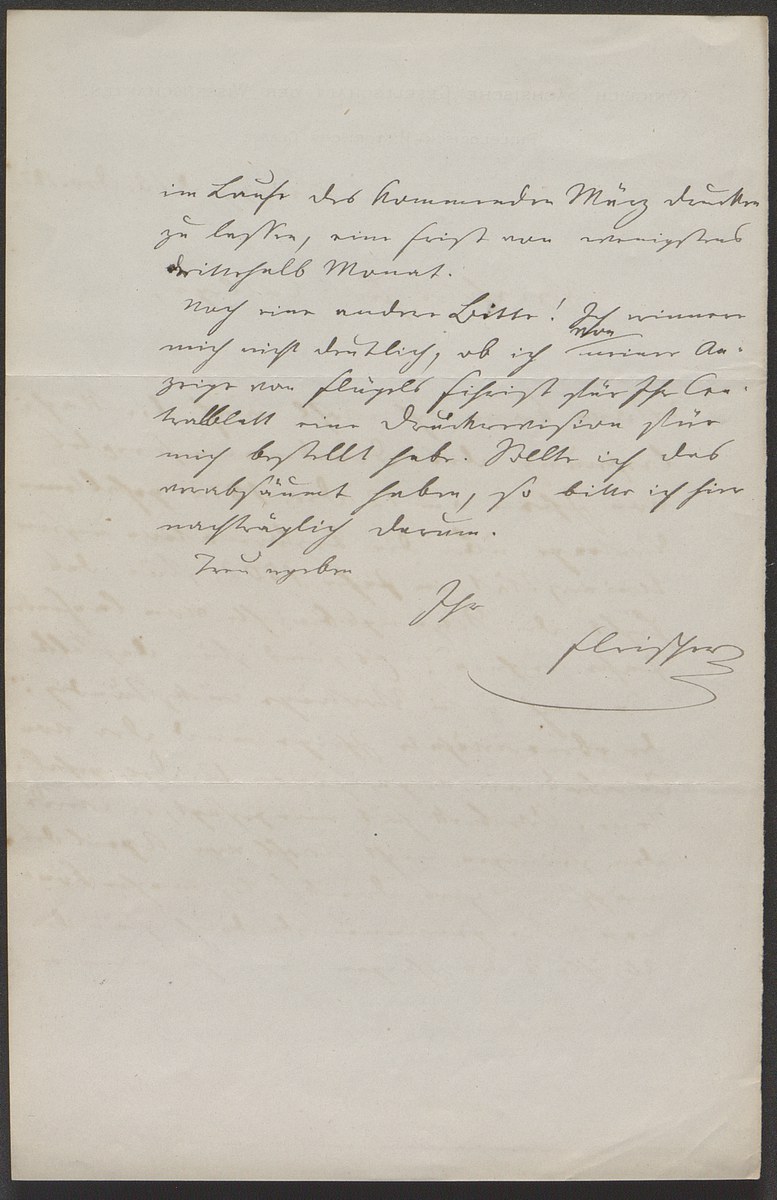 im Laufe des kommenden März drucken
zu lassen, eine Frist von wenigstens
drittehalb Monat.
Noch eine andere Bitte! Ich erinnere
mich nicht deutlich, ob ich von meiner An-
zeige von Flügels Schrift für Ihr Cen-
tralblatt eine Druckrevision für
mich bestellt habe. Sollte ich das
verabsäumt haben, so bitte ich hier
nachträglich darum.
Treu ergeben
Ihr
Fleischer